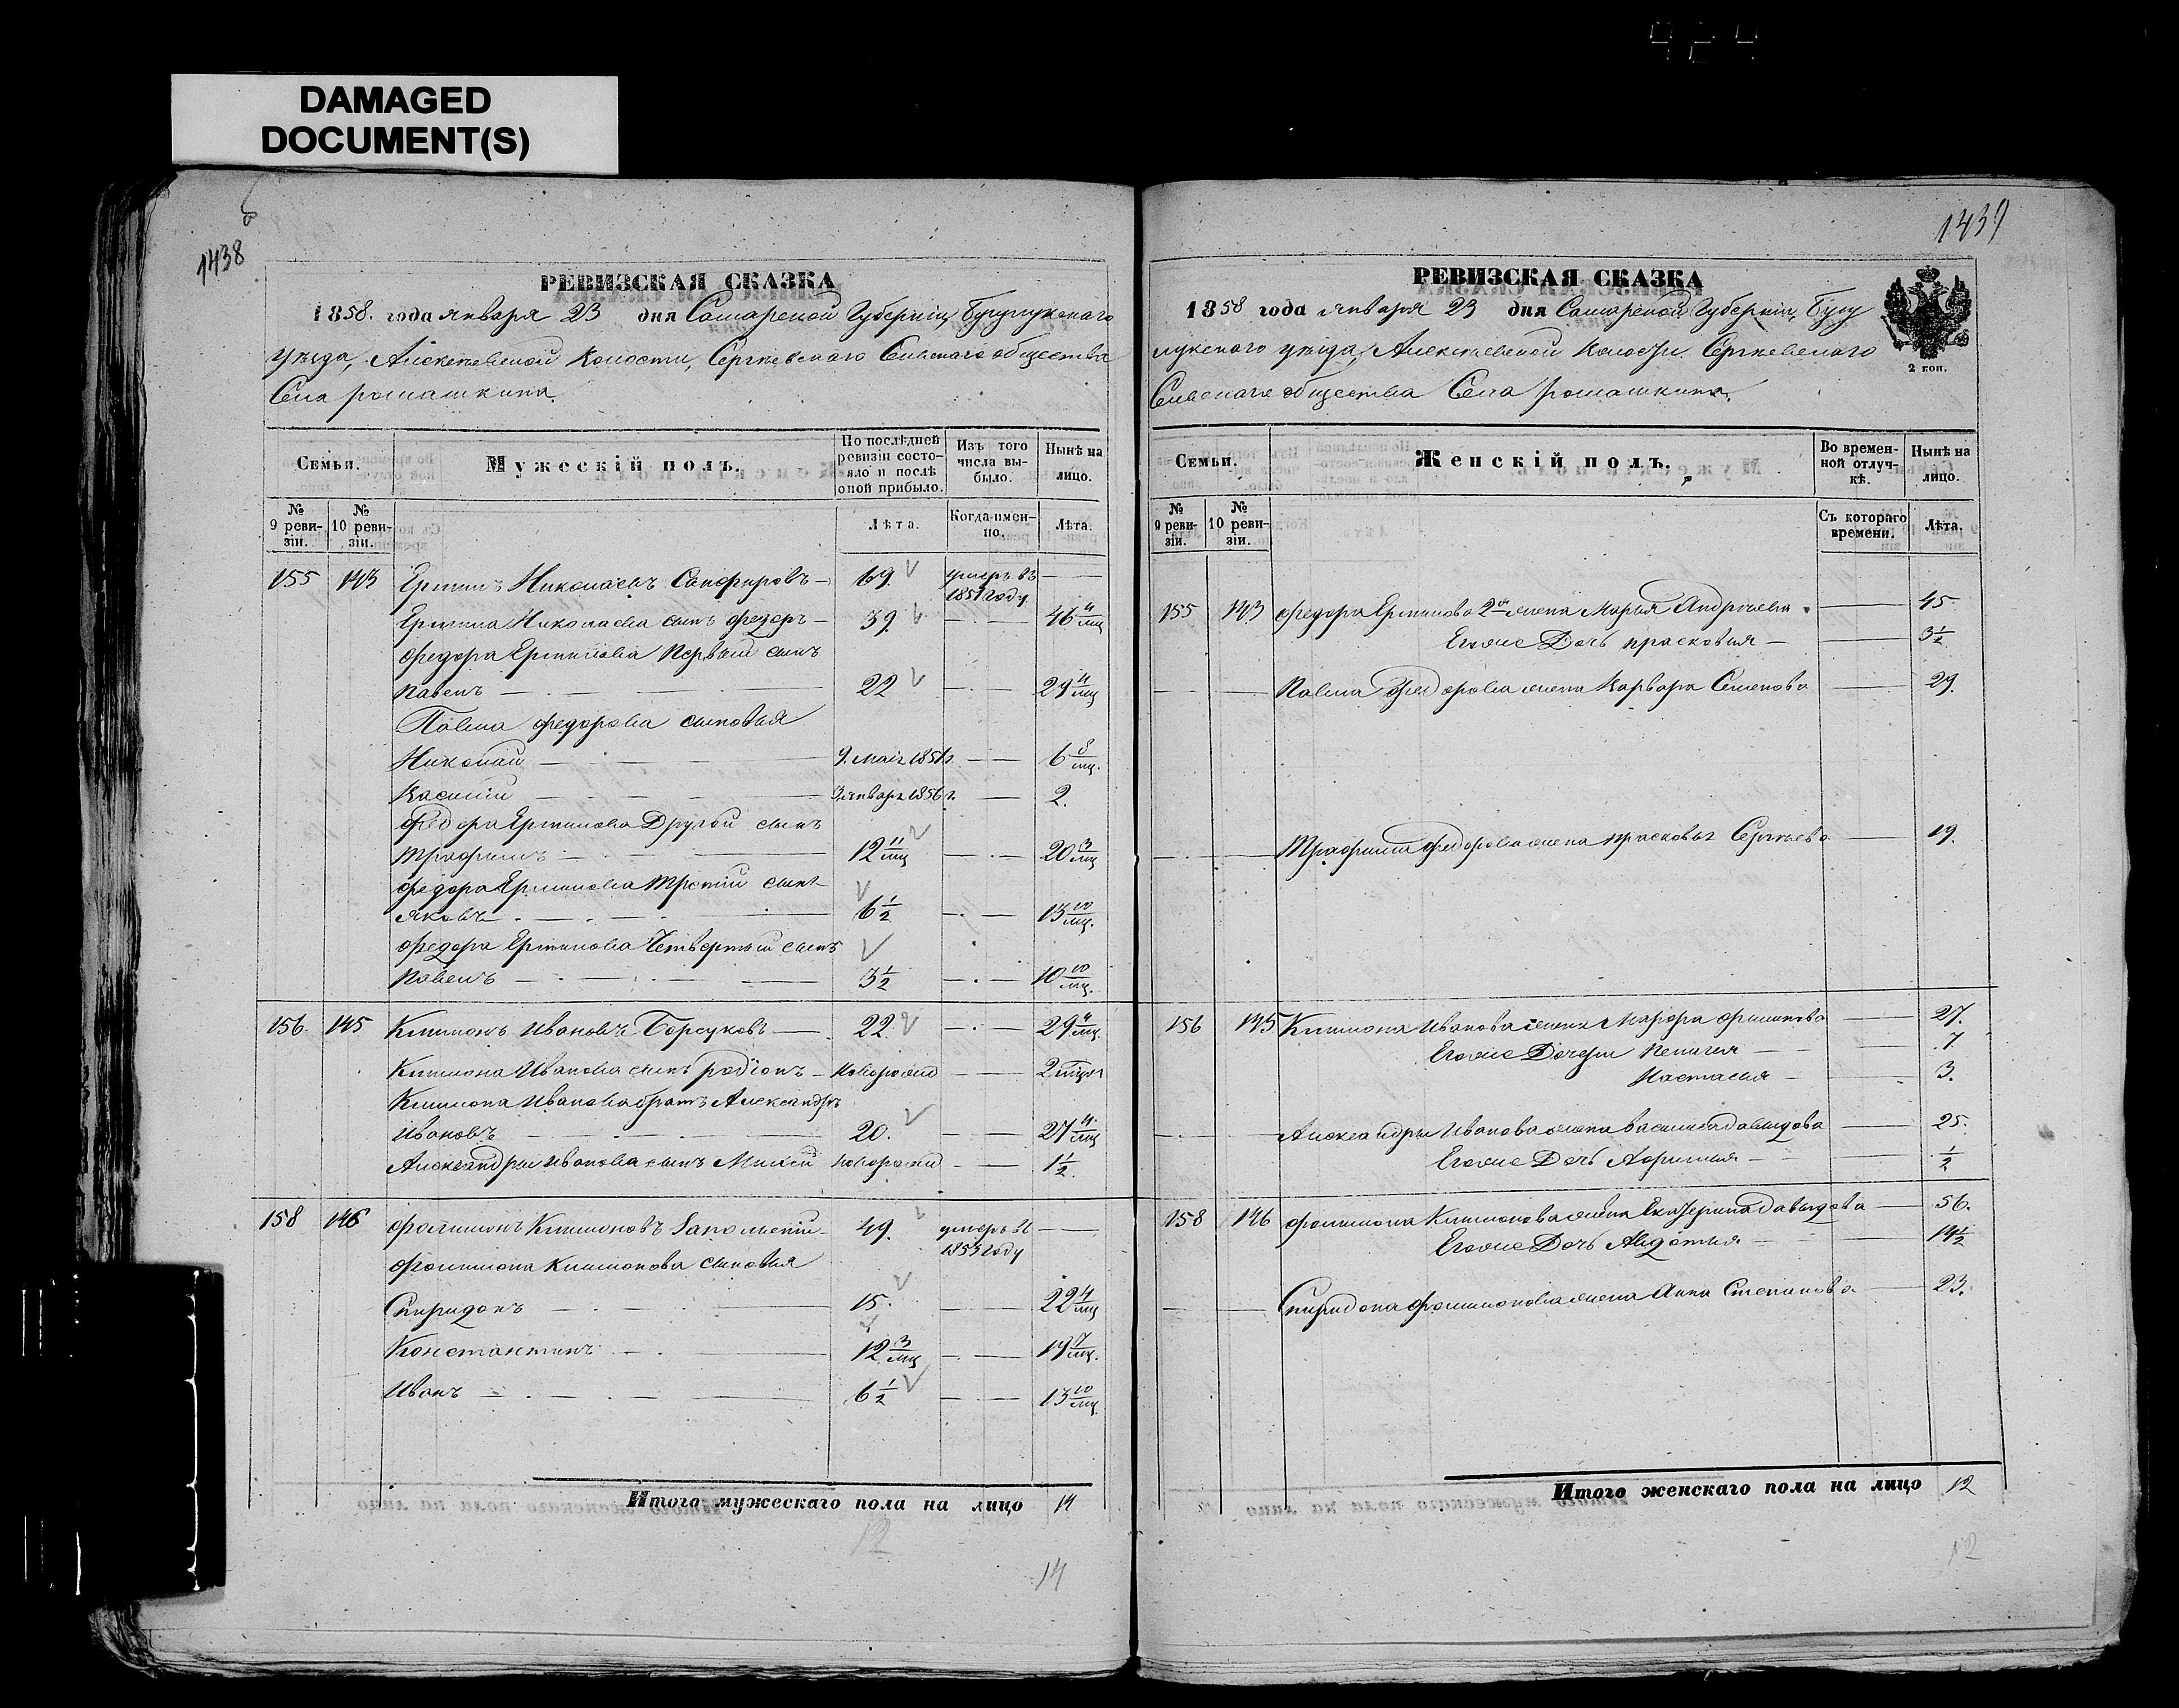 DAMAGED
DOCUMENT(S)
1438
РЕВИЗСКАЯ СКАЗКА
1858. года января 23 дня Самарской Губерніи, Бузулукскаго
уѣзда, Алексѣевской Волости, Сергѣевского Сельскаго общества
Села ромашкина.
Семьи.
Мужескій полъ.
По послѣдней ревизіи состояло и послѣ оной прибыло.
Изъ того числа выбыло.
Нынѣ на лицо.
№ 9 ревизіи.
№ 10 ревизіи.
Лѣта.
Когда имен-но.
Лѣта.
155 143 Ермилъ Николаевъ Сапфировъ — 69. умеръ въ 1851 году
Ермила Николаева сынъ федоръ — 39. 46 4/мц
федора Ермилова Первый сынъ
павелъ 22 29 4/мц
Павла федорова сыновья
Николай 9. маія 1851 г. 6 8/мц.
Василий 3 января 1856 г. 2.
федора Ермилова Другой сынъ
трофимъ 12 11/мц 20 3/мц
федора Ермилова третий сынъ
яковъ 6 1/2 13 10/мц.
федора Ермилова Четвертый сынъ
павелъ 3 1/2 10 10/мц.
156. 145 Климонъ Ивановъ Борсуковъ — 22. 29 4/мц.
Климона Иванова сынъ родіонъ — новорожд 2
Климона Иванова братъ Александръ
Ивановъ 20. 27 4/мц
Александры иванова сынъ новорожд 1 1/2.
158 146 филимонъ Климоновъ 49. умеръ въ 1853 году
филимона Климонова сыновья
Спиридонъ 15. 22 4/мц
Константинъ 12 3/мц 19 7/мц.
Иванъ 6 1/2 13 10/мц.
Итого мужескаго пола на лицо 14
12
14
1439
РЕВИЗСКАЯ СКАЗКА
1858 года января 23 дня Самарской Губерніи, Бузу
лукского уѣзда, Алексѣевской Волости. Сергѣевского
Сельскаго общества Села ромашкина.
2 коп.
Семьи.
Женскій полъ.
Во времен-ной отлуч-кѣ.
Нынѣ на лицо.
№ 9 реви-зіи.
№ 10 реви-зіи.
Съ котораго времени.
Лѣта.
155 143 федора Ермилова 2ая жена Марья Андреева 45.
Егоже Дочь прасковья — 3 1/2
Павла Федорова жена Варвара Семенова 29.
Трофима федорова жена прасковья Сергѣева 19.
156 145 Климона Иванова жена Марфа филипова 27.
Егоже Дочери Пелагея 7
Настасья 3.
Александры Иванова жена василиса давидова 25.
Егоже Дочь Афимья 1/2
158 146 филимона Климонова жена Екатерина давыдова 56.
Егоже Дочь Авдотья 14 1/2
Спиридона филимонова жена Анна Степанова 23.
Итого женскаго пола на лицо 12
12